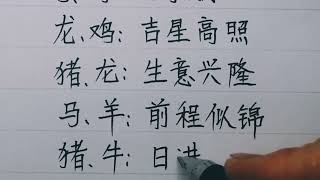 龙、鸡：吉星高照
猪、龙：生意兴隆
马、羊：前程似锦
猪、牛：日进